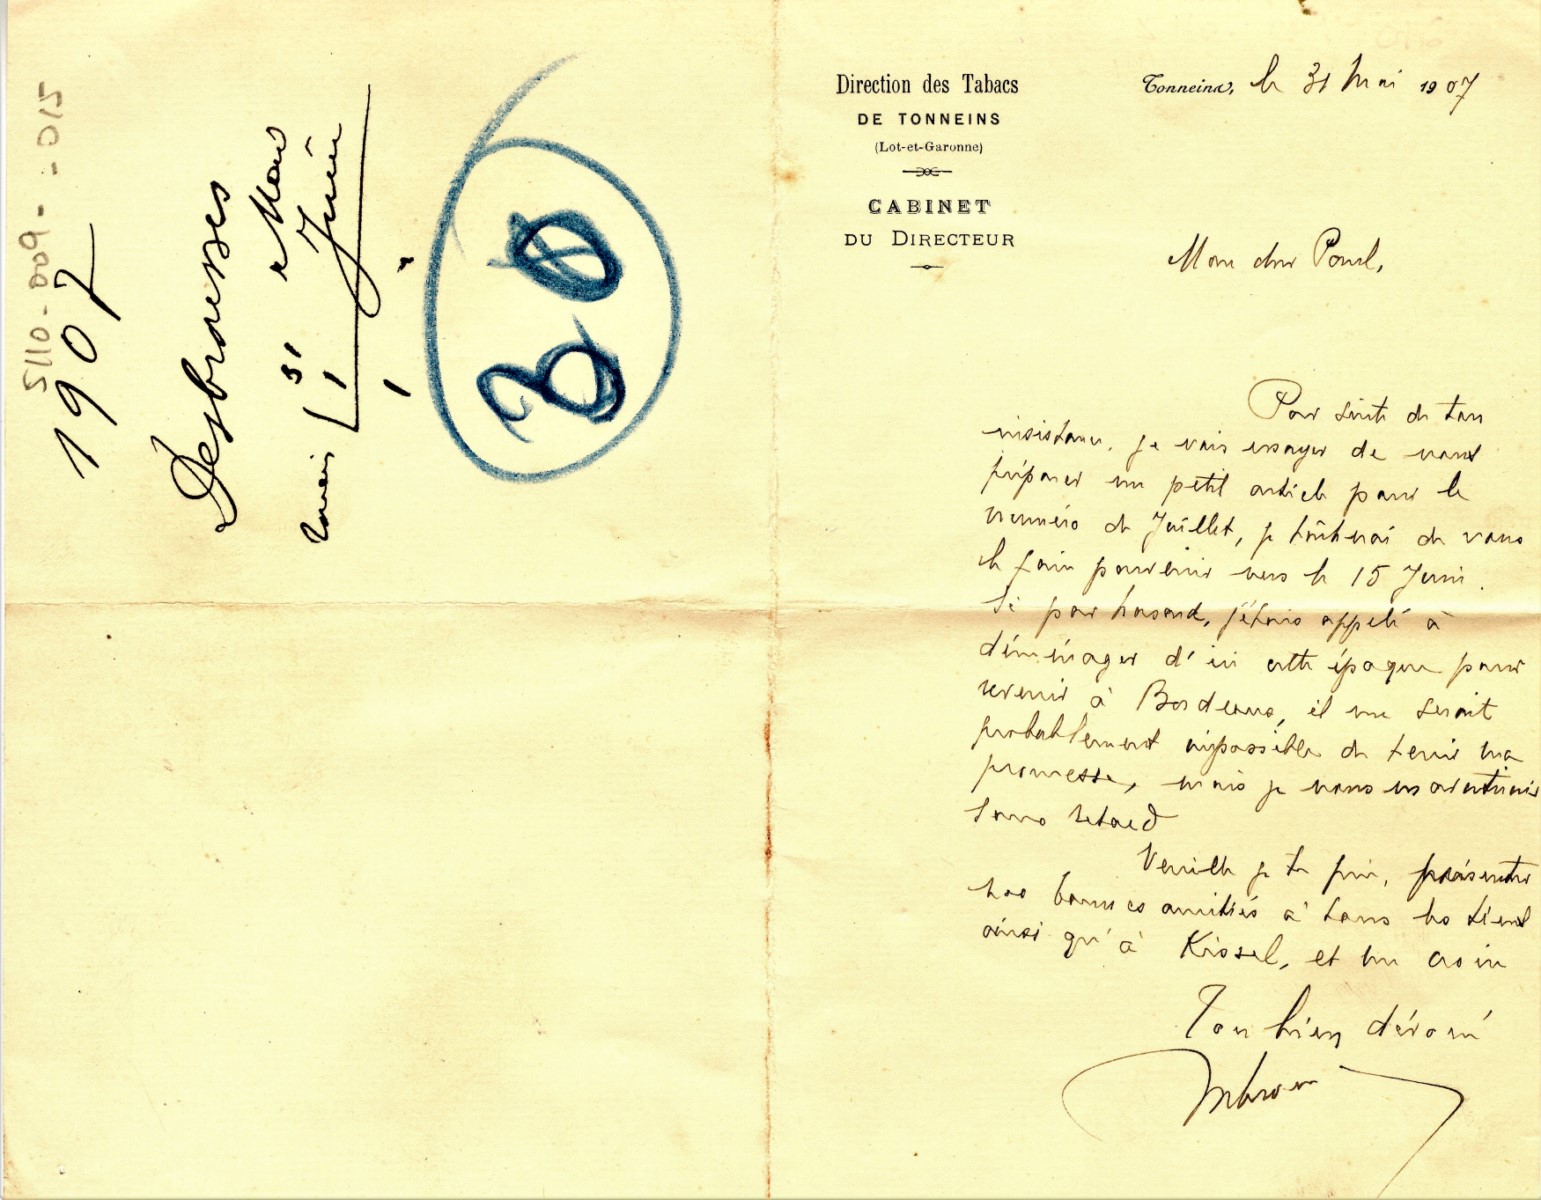 5110-009- -015
1907
Desbrousses
31 Mai
reçu 1 Juin
30
Direction des Tabacs
DE TONNEINS
(Lot-et-Garonne)
CABINET
DU DIRECTEUR
Tonneins, le 31 Mai 1907
Mon cher Paul,
Pour suite de ton
insistance, je vais essayer de vous
préparer un petit article pour le
numéro de Juillet, je tâcherai de vous
le faire parvenir vers le 15 Juin.
Si par hasard, j'étais appelé à
déménager d'ici cette époque pour
revenir à Bordeaux, il me serait
probablement impossible de tenir ma
promesse, mais je vous en avertirais
sans retard
Veuille je te prie, présenter
nos bonnes amitiés à tous les tiens
ainsi qu'à Kissel, et me croire
Ton bien dévoué